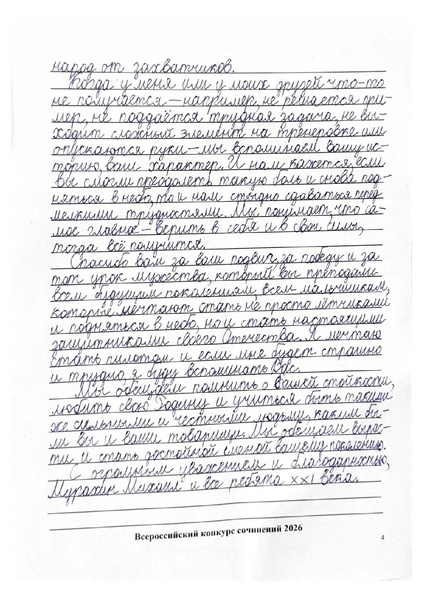 народ от захватчиков.
Когда у меня или у моих друзей что-то
не получается – например, не решается при-
мер, не поддаётся трудная задача, не вы-
ходит сложный элемент на тренеровке или
опускаются руки – мы вспоминаем вашу ис-
торию, ваш характер. И нам кажется, если
вы смогли преодолеть такую боль и снова под-
няться в небо, то и нам стыдно сдаваться перед
мелкими трудностями. Мы понимаем, что са-
мое главное – верить в себя и в свои силы,
тогда всё получится.
Спасибо вам за ваш подвиг, за победу и за
тот урок мужества, который вы преподали
всем будущим поколениям, всем мальчишкам,
которые мечтают стать не просто лётчиками
и подняться в небо, но и стать настоящими
защитниками своего Отечества. Я мечтаю
стать пилотом и если мне будет страшно
и трудно, я буду вспоминать Вас.
Мы обещаем помнить о вашей стойкости,
любить свою Родину и учиться быть такими
же сильными и честными людьми, каким бы-
ли вы и ваши товарищи. Мы обещаем вырас-
ти и стать достойной сменой вашему поколению.
С огромным уважением и благодарностью,
Михаил и все ребята XXI века.
Всероссийский конкурс сочинений 2026
4